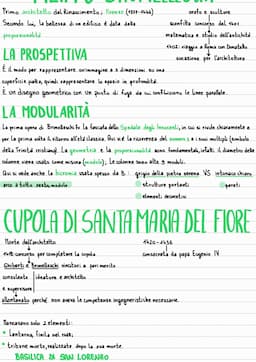 FILIPPO BRUNELLESCHI
Primo architetto del Rinascimento; Firenze (1377-1446)
orafo e scultore
Secondo lui, la bellezza di un edificio è data dalla
sconfitta concorso del 1401
proporzionalità
matematica e studio dell'antichità
1402: viaggio a Roma con Donatello
LA PROSPETTIVA
vocazione per l'architettura
È il modo per rappresentare un'immagine a 3 dimensioni su una
superficie piatta, quindi rappresentare lo spazio in profondità.
È un disegno geometrico con un punto di fuga da cui confluiscono le linee parallele.
LA MODULARITÀ
La prima opera di Brunelleschi fu la facciata dello Spedale degli Innocenti, in cui si rivide chiaramente a
per la prima volta un riferimento all'età classica. Qui vi è la ricorrenza del numero 3 e i suoi multipli (simbolo
della Trinità cristiana). La geometria e la proporzionalità sono fondamentali, infatti il diametro delle
colonne viene usato come misura (modulo), le colonne sono alte 9 moduli.
Qui si vede anche la bicromia usata spesso da B.: grigio della pietra serena VS intonaco chiaro
arco a tutto sesto, modulo
strutture portanti
pareti
elementi decorativi
CUPOLA DI SANTA MARIA DEL FIORE
Morte dell'architetto
1420-1436
1418 concorso per completare la cupola
consacrata da papa Eugenio IV
Ghiberti e Brunelleschi vincitori a parimerito
consulente
ideatore e architetto
e supervisore
allontanato perché non aveva le competenze ingegneristiche necessarie.
Mancavano solo 2 elementi:
* Lanterna, finita nel 1468;
* tribune morte, realizzate dopo la sua morte.
BASILICA DI SAN LORENZO